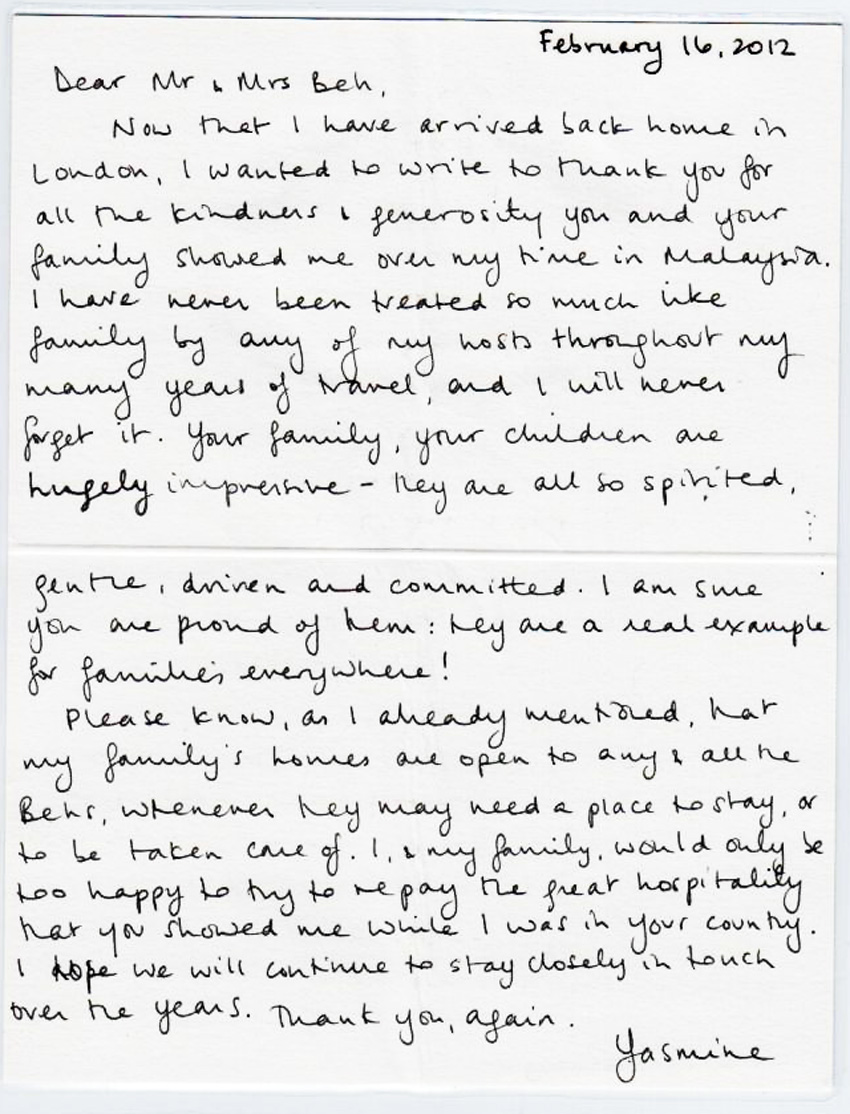 February 16, 2012
Dear Mr & Mrs Beh,
Now that I have arrived back home in
London, I wanted to write to thank you for
all the kindness & generosity you and your
family showed me over my time in Malaysia.
I have never been treated so much like
family by any of my hosts throughout my
many years of travel, and I will never
forget it. Your family, your children are
hugely impressive - they are all so spirited,
gentle, driven and committed. I am sure
you are proud of them: they are a real example
for families everywhere!
Please know, as I already mentioned, that
my family's homes are open to any & all the
Behs, whenever they may need a place to stay, or
to be taken care of. I, & my family, would only be
too happy to try to repay the great hospitality
that you showed me while I was in your country.
I hope we will continue to stay closely in touch
over the years. Thank you, again.
Yasmine